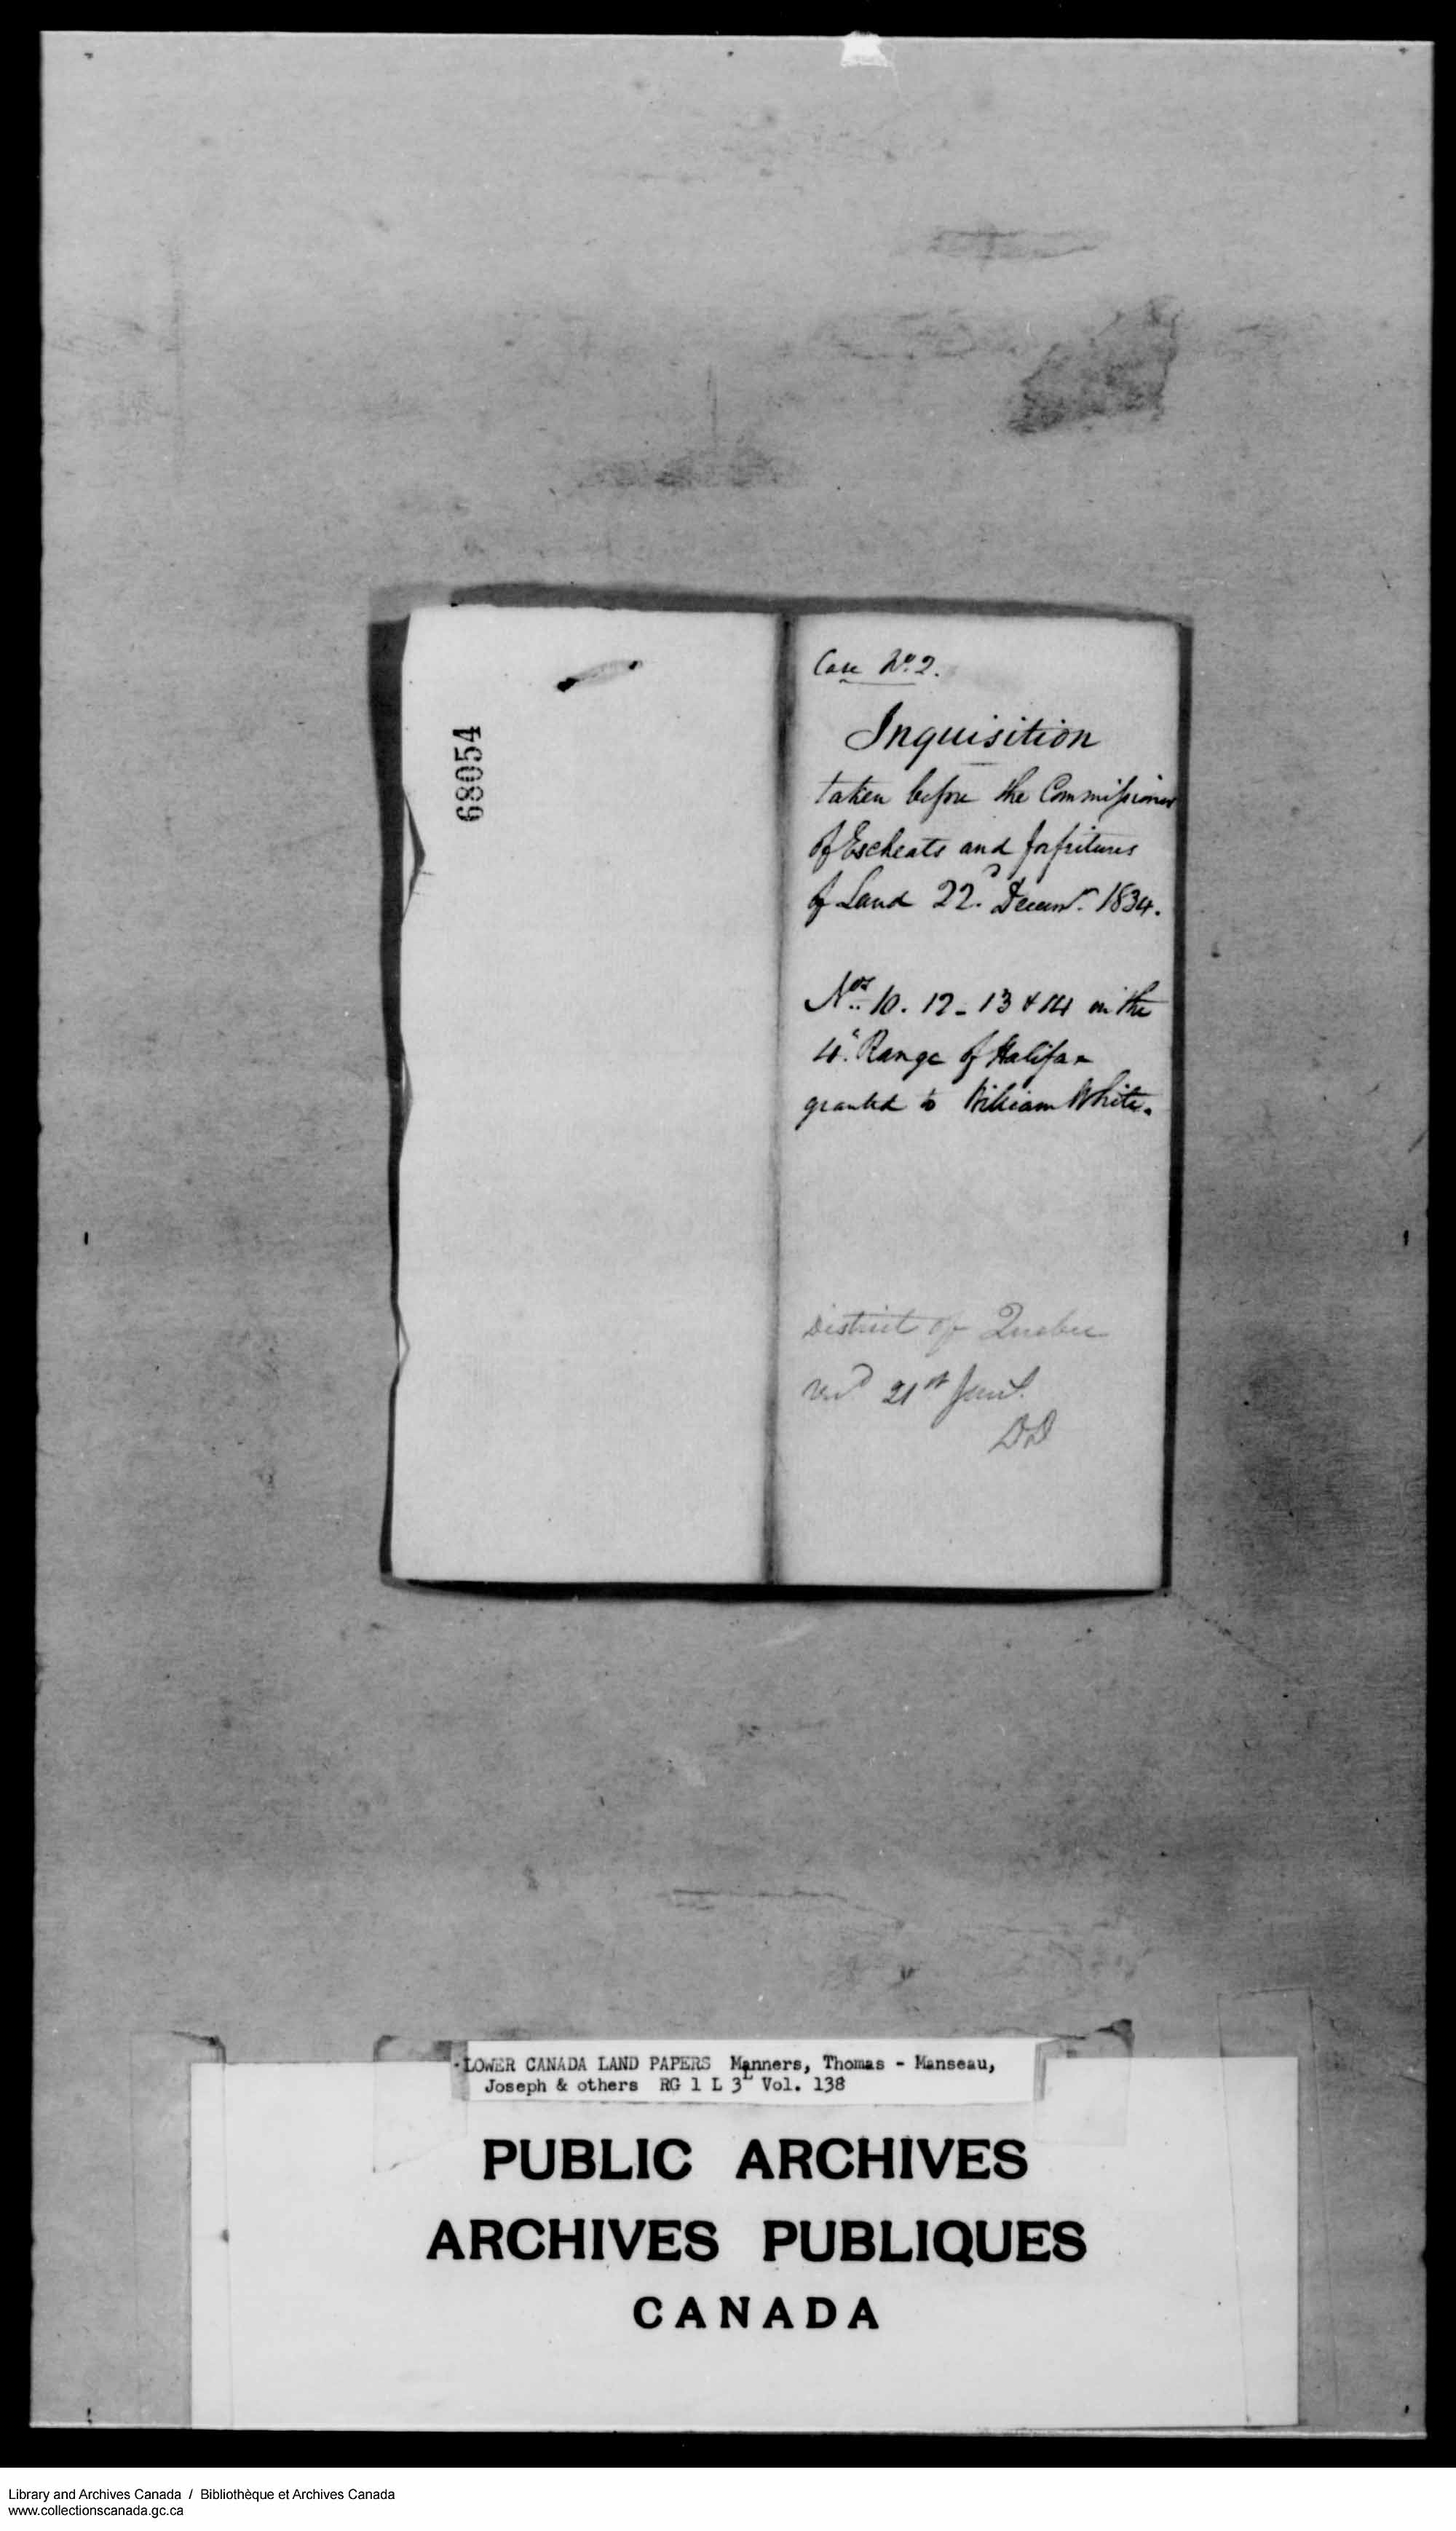 68054
Case No. 2.
Inquisition
taken before the Commissioner
of Escheats and forfeitures
of Land 22d. Decemr. 1834.
Nos. 10. 12 - 13 & 14 in the
4th Range of Halifax
granted to William White.
District of Quebec
21st
LOWER CANADA LAND PAPERS Manners, Thomas - Manseau,
Joseph & others RG 1 L 3L Vol. 138
PUBLIC ARCHIVES
ARCHIVES PUBLIQUES
CANADA
Library and Archives Canada / Bibliothèque et Archives Canada
www.collectionscanada.gc.ca